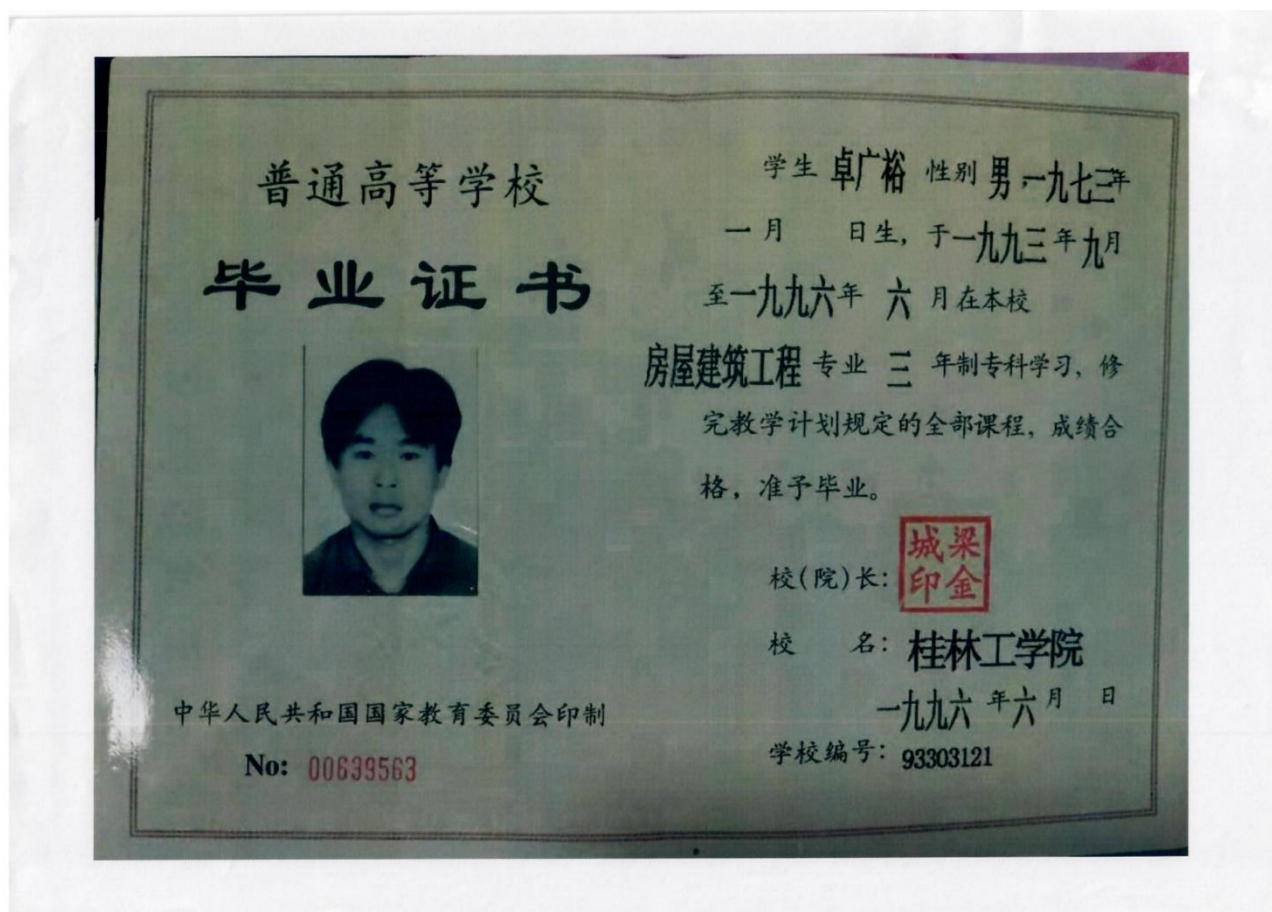 普通高等学校
毕业证书
中华人民共和国国家教育委员会印制
No: 00639563
学生 卓广裕 性别 男,一九七三年
一月 日生，于一九九三年九月
至一九九六年 六 月在本校
房屋建筑工程 专业 三 年制专科学习，修
完教学计划规定的全部课程，成绩合
格，准予毕业。
校(院)长：
梁金城印
校 名：桂林工学院
一九九六 年六月 日
学校编号：93303121